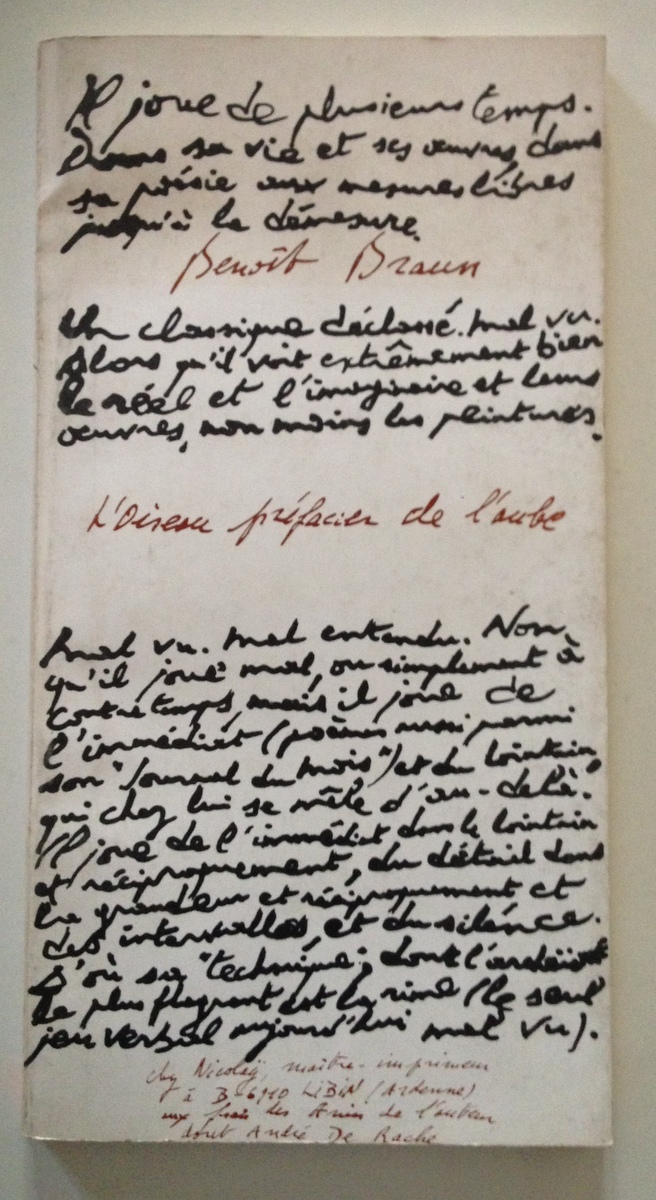 Il joue de plusieurs temps.
Dans sa vie et ses œuvres, dans
sa poésie aux mesures libres
jusqu'à la démesure.
Benoît Braun
Un classique déclassé. Mal vu.
Alors qu'il voit extrêmement bien
le réel et l'imaginaire et leurs
œuvres, non moins les peintures.
L'Oiseau préfacier de l'aube
Mal vu. Mal entendu. Non,
qu'il joue mal, ou simplement à
contretemps, mais il joue de
l'immédiat (poèmes aussi parmi
son "Journal du Mois") et du lointain,
qui chez lui se mêle d'"au-delà".
Il joue de l'immédiat dans le lointain
et réciproquement, du détail dans
la grandeur et réciproquement et
des intervalles et du silence.
D'où sa "technique", dont l'
le plus flagrant est la rime (le seul
jeu verbal aujourd'hui mal vu).
chez Nicolaÿ, maître-imprimeur
à B-6910 LIBIN (Ardenne)
aux frais des Amis de l'auteur
dont André De Rache